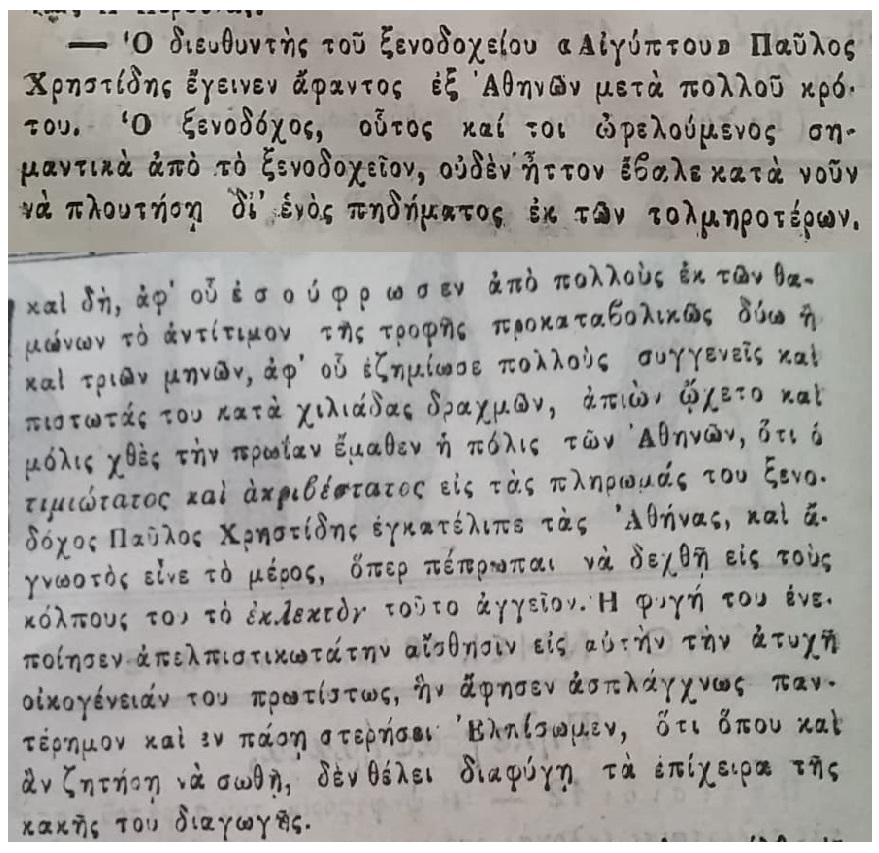 — Ὁ διευθυντὴς τοῦ ξενοδοχείου «Αἰγύπτου» Παῦλος
Χρηστίδης ἔγεινεν ἄφαντος ἐξ Ἀθηνῶν μετὰ πολλοῦ κρό-
του. Ὁ ξενοδόχος, οὗτος καί τοι ὠφελούμενος ση-
μαντικὰ ἀπὸ τὸ ξενοδοχεῖον, οὐδὲν ἧττον ἔβαλε κατὰ νοῦν
νὰ πλουτήσῃ δι’ ἑνὸς πηδήματος ἐκ τῶν τολμηροτέρων.
καὶ δὴ, ἀφ’ οὗ ἐσούφρωσεν ἀπὸ πολλοὺς ἐκ τῶν θα-
μώνων τὸ ἀντίτιμον τῆς τροφῆς προκαταβολικῶς δύω ἢ
καὶ τριῶν μηνῶν, ἀφ’ οὗ ἐζημίωσε πολλοὺς συγγενεῖς καὶ
πιστωτάς του κατὰ χιλιάδας δραχμῶν, ἀπιὼν ᾤχετο καὶ
μόλις χθὲς τὴν πρωΐαν ἔμαθεν ἡ πόλις τῶν Ἀθηνῶν, ὅτι ὁ
τιμιώτατος καὶ ἀκριβέστατος εἰς τὰς πληρωμάς του ξενο-
δόχος Παῦλος Χρηστίδης ἐγκατέλιπε τὰς Ἀθήνας, καὶ ἄ-
γνωοτὸς εἶνε τὸ μέρος, ὅπερ πέπρωπαι νὰ δεχθῇ εἰς τοὺς
κόλπους του τὸ ἐκλεκτὸν τοῦτο ἀγγεῖον. Ἡ φυγή του ἐνε-
ποίησεν ἀπελπιστικωτάτην αἴσθησιν εἰς αὐτὴν τὴν ἀτυχῆ
οἰκογένειάν του πρωτίστως, ἣν ἄφησεν ἀσπλάγχνως παν-
τέρημον καὶ ἐν πάσῃ στερήσει Ἐλπίσωμεν, ὅτι ὅπου καὶ
ἂν ζητήσῃ νὰ σωθῇ, δὲν θέλει διαφύγῃ τὰ ἐπίχειρα τῆς
κακῆς του διαγωγῆς.